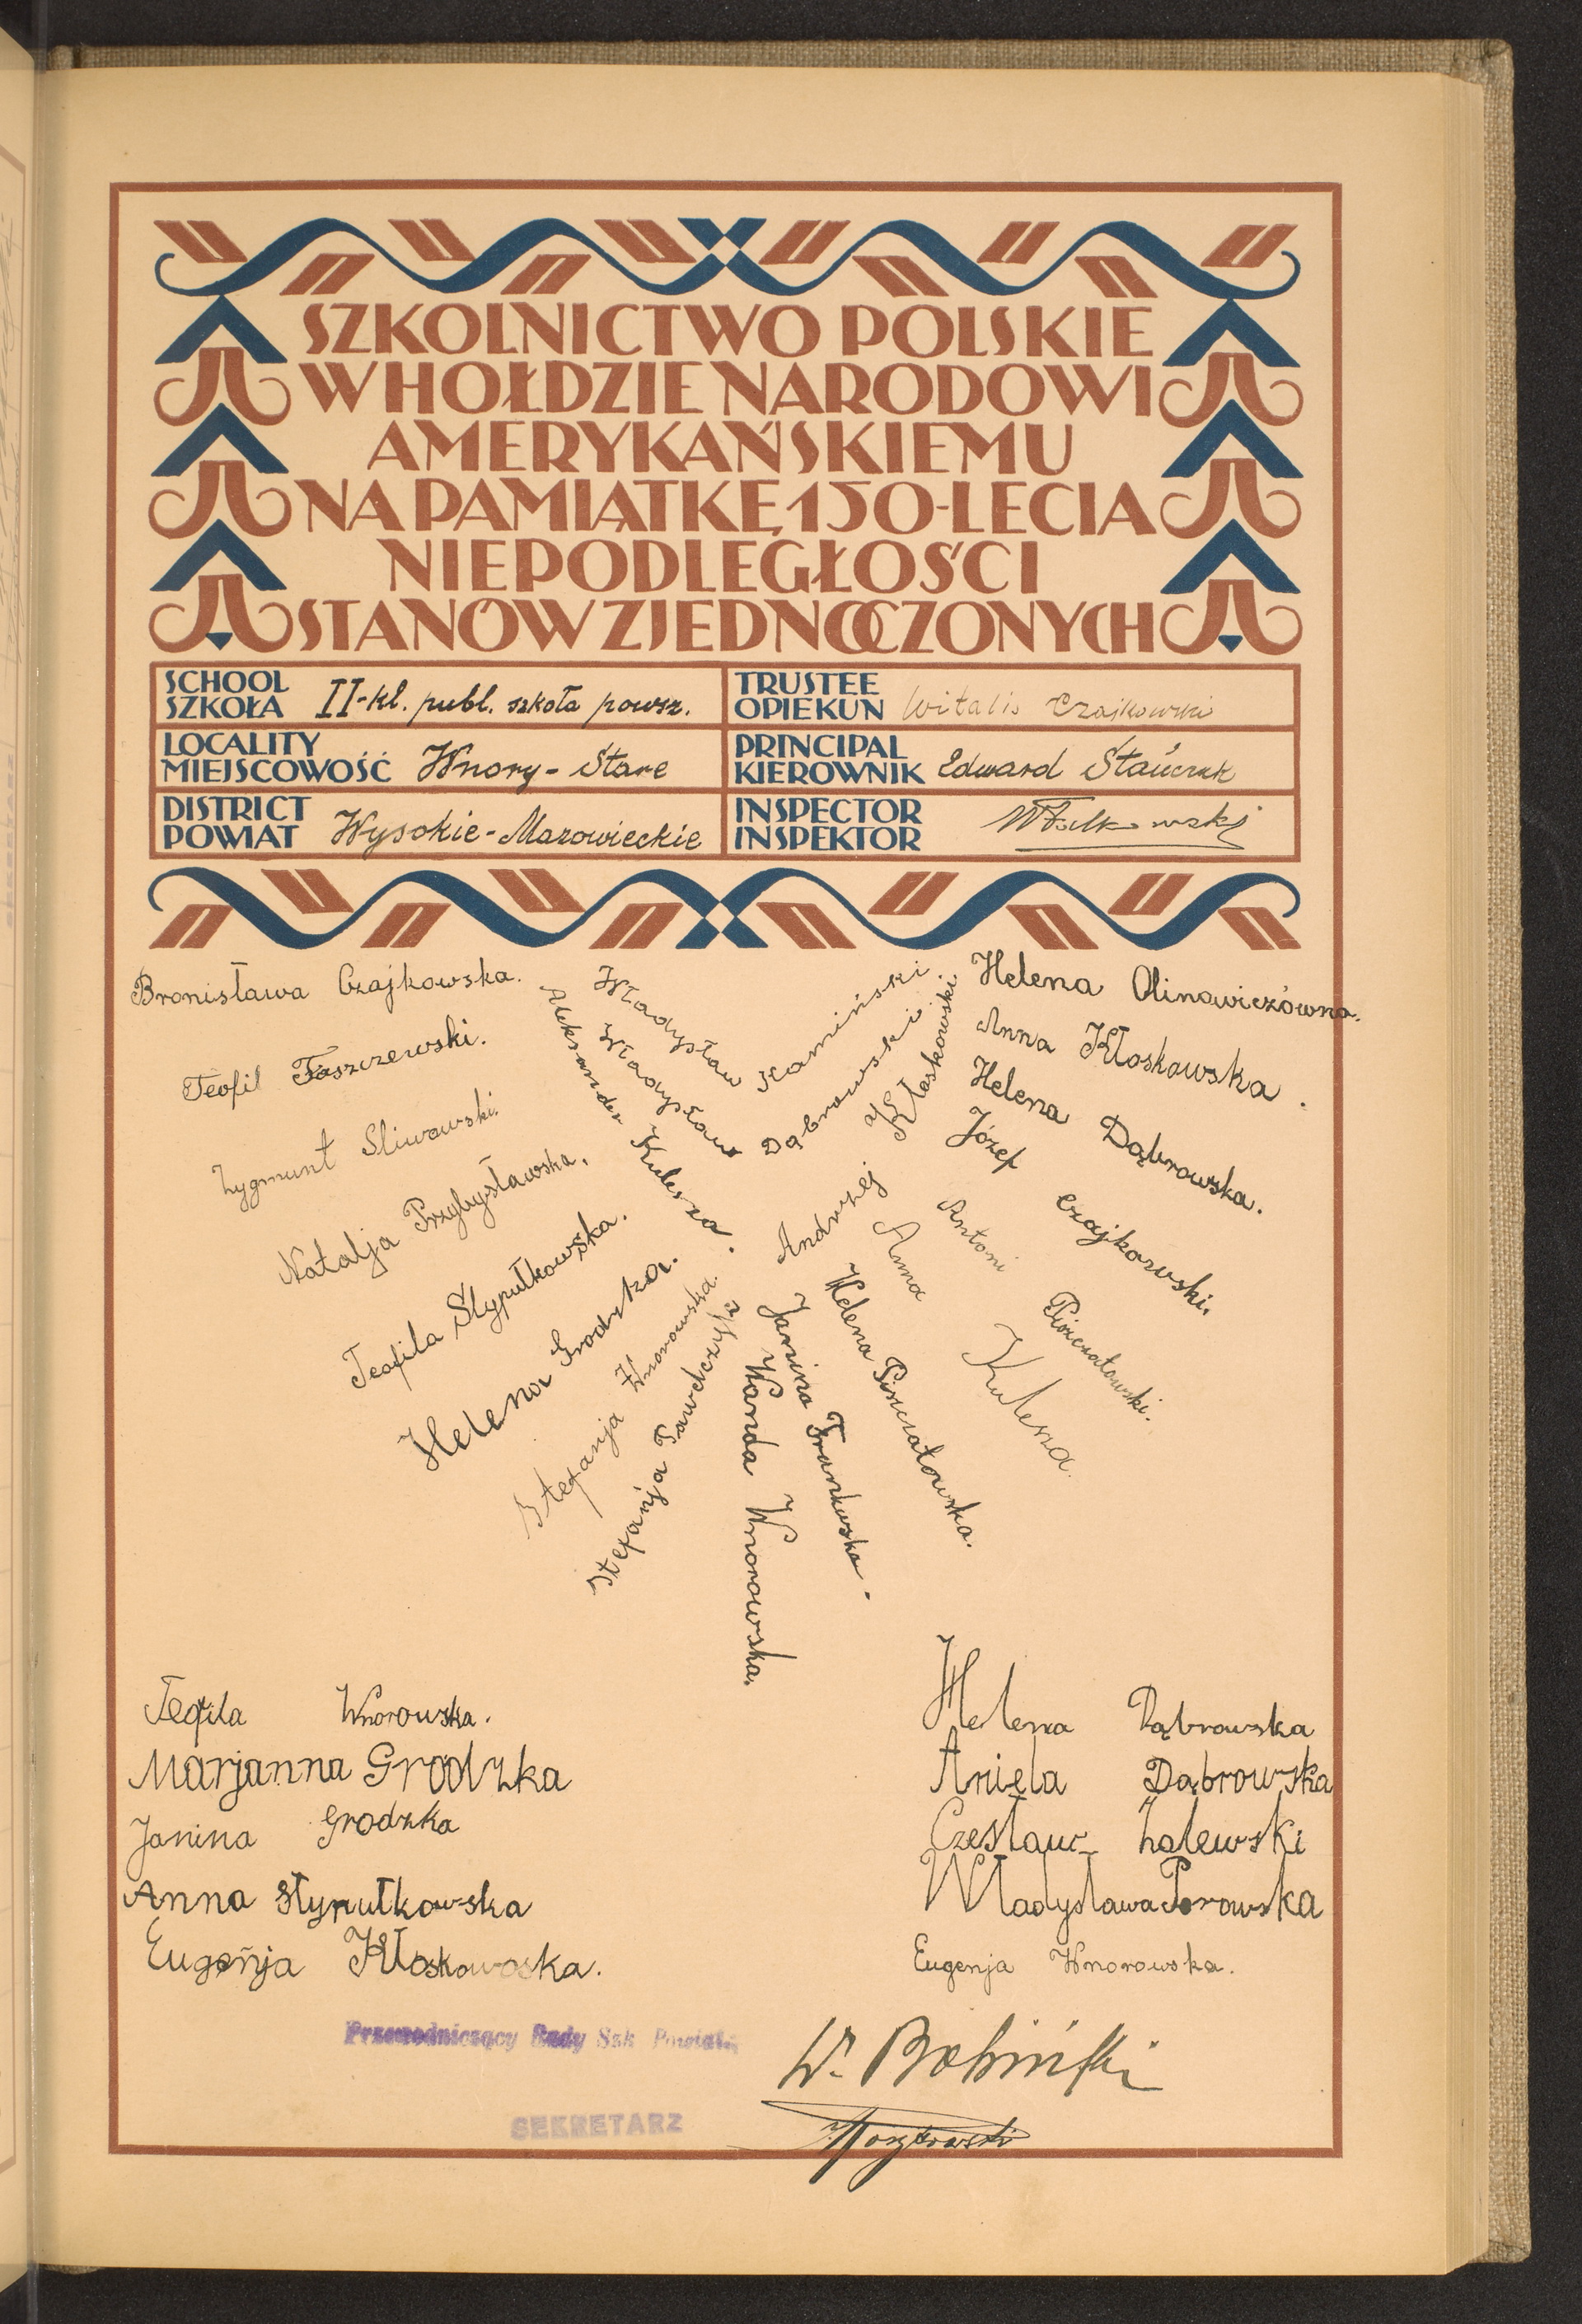 SZKOLNICTWO POLSKIE
W HOŁDZIE NARODOWI
AMERYKAŃSKIEMU
NA PAMIĄTKĘ 150-LECIA
NIEPODLEGŁOŚCI
STANÓW ZJEDNOCZONYCH
SCHOOL
SZKOŁA II-kl. publ. szkoła powsz.
TRUSTEE
OPIEKUN Witalis Czajkowski
LOCALITY
MIEJSCOWOŚĆ Wnory-Stare
PRINCIPAL
KIEROWNIK Edward Stańczuk
DISTRICT
POWIAT Wysokie-Mazowieckie
INSPECTOR
INSPEKTOR
Bronisława Czajkowska.
Teofil Faszczewski.
Zygmunt Sliwowski.
Natalja Przybysławska.
Teofila Stypułkowska.
Helena Grodzka.
Stefanja Wnorowska.
Stefanja Pawelczyk
Aleksander Kulesza.
Władysław Kamiński.
Władysław Dąbrowski.
Andrzej Kłoskowski
Wanda Wnorowska.
Janina Frankowska.
Helena Piszczatowska.
Anna Kulesza.
Antoni Piszczatowski.
Józef Czajkowski.
Helena Dąbrowska.
Anna Kłoskowska.
Helena Olinowiczówna.
Teofila Wnorowska.
Marjanna Grodzka
Janina Grodzka
Anna Stypułkowska
Eugenja Kłoskowska.
Helena Dąbrowska
Aniela Dąbrowska
Czesław Zalewski
Władysława Porowska
Eugenja Wnorowska.
Przewodniczący Rady Szk Powiat.
W. Bobiński
SEKRETARZ